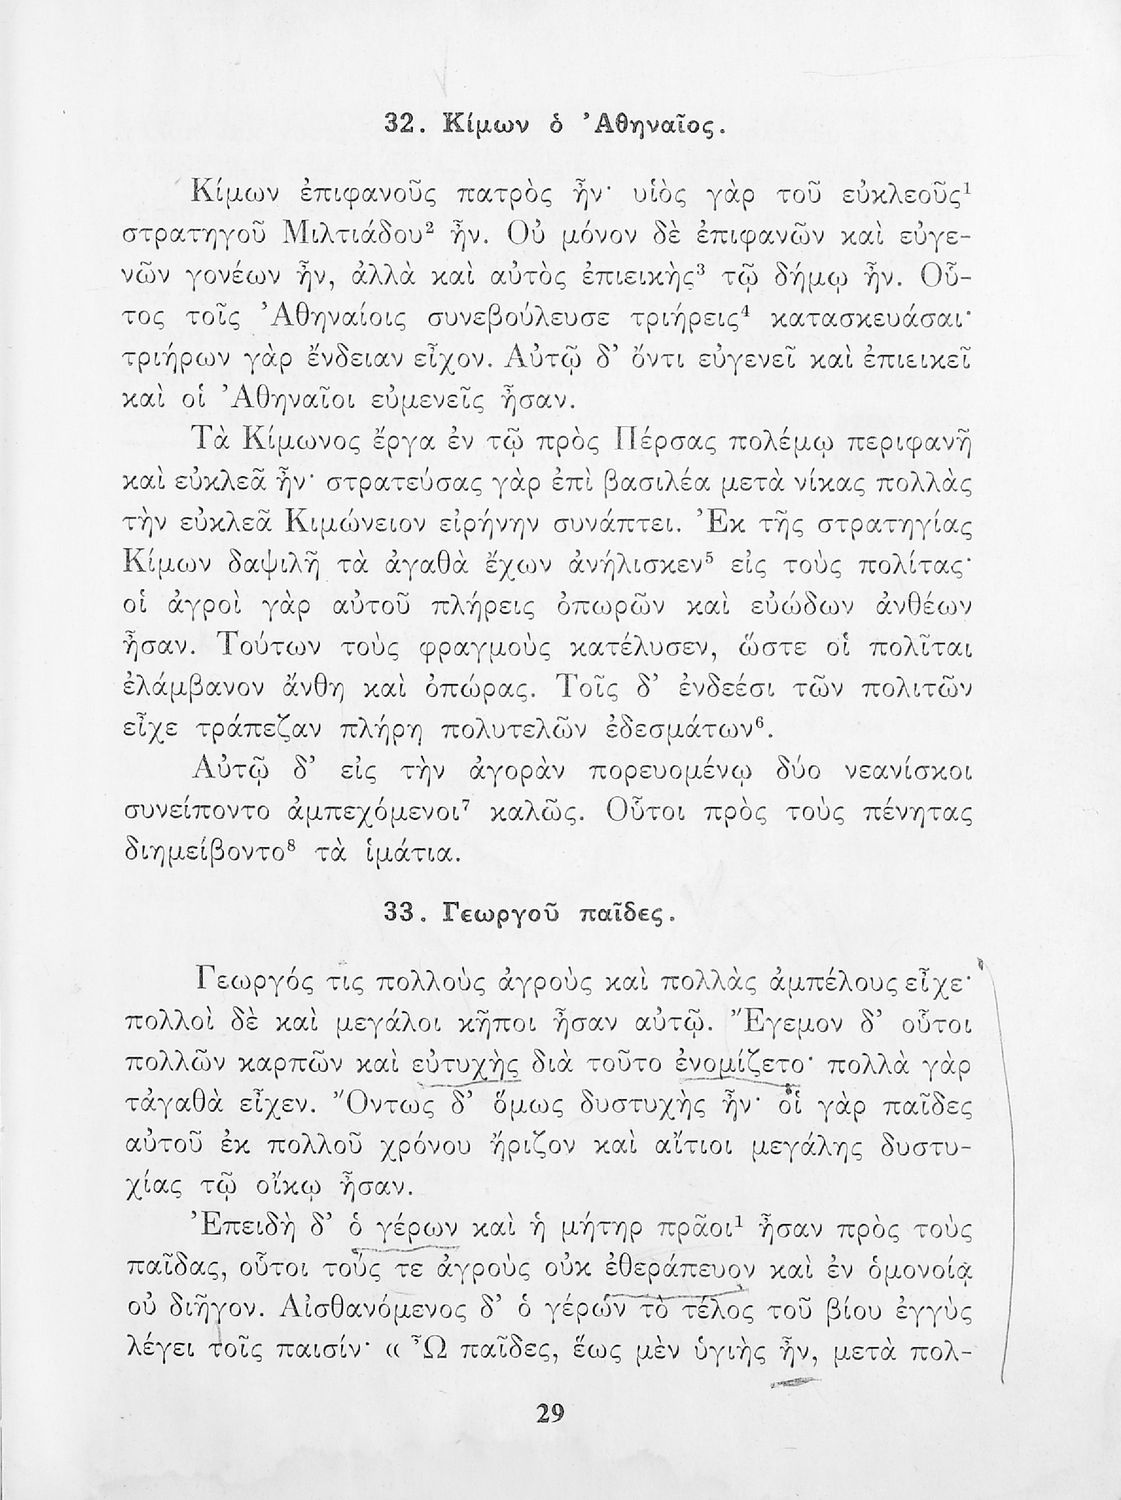 32. Κίμων ὁ Ἀθηναῖος.
Κίμων ἐπιφανοῦς πατρὸς ἦν· υἱὸς γὰρ τοῦ εὐκλεοῦς¹
στρατηγοῦ Μιλτιάδου² ἦν. Οὐ μόνον δὲ ἐπιφανῶν καὶ εὐγε-
νῶν γονέων ἦν, ἀλλὰ καὶ αὐτὸς ἐπιεικὴς³ τῷ δήμῳ ἦν. Οὗ-
τος τοῖς Ἀθηναίοις συνεβούλευσε τριήρεις⁴ κατασκευάσαι·
τριήρων γὰρ ἔνδειαν εἶχον. Αὐτῷ δ’ ὄντι εὐγενεῖ καὶ ἐπιεικεῖ
καὶ οἱ Ἀθηναῖοι εὐμενεῖς ἦσαν.
Τὰ Κίμωνος ἔργα ἐν τῷ πρὸς Πέρσας πολέμῳ περιφανῆ
καὶ εὐκλεᾶ ἦν· στρατεύσας γὰρ ἐπὶ βασιλέα μετὰ νίκας πολλὰς
τὴν εὐκλεᾶ Κιμώνειον εἰρήνην συνάπτει. Ἐκ τῆς στρατηγίας
Κίμων δαψιλῆ τὰ ἀγαθὰ ἔχων ἀνήλισκεν⁵ εἰς τοὺς πολίτας·
οἱ ἀγροὶ γὰρ αὐτοῦ πλήρεις ὀπωρῶν καὶ εὐώδων ἀνθέων
ἦσαν. Τούτων τοὺς φραγμοὺς κατέλυσεν, ὥστε οἱ πολῖται
ἐλάμβανον ἄνθη καὶ ὀπώρας. Τοῖς δ’ ἐνδεέσι τῶν πολιτῶν
εἶχε τράπεζαν πλήρη πολυτελῶν ἐδεσμάτων⁶.
Αὐτῷ δ’ εἰς τὴν ἀγορὰν πορευομένῳ δύο νεανίσκοι
συνείποντο ἀμπεχόμενοι⁷ καλῶς. Οὗτοι πρὸς τοὺς πένητας
διημείβοντο⁸ τὰ ἱμάτια.
33. Γεωργοῦ παῖδες.
Γεωργός τις πολλοὺς ἀγροὺς καὶ πολλὰς ἀμπέλους εἶχε·
πολλοὶ δὲ καὶ μεγάλοι κῆποι ἦσαν αὐτῷ. Ἔγεμον δ’ οὗτοι
πολλῶν καρπῶν καὶ εὐτυχὴς διὰ τοῦτο ἐνομίζετο· πολλὰ γὰρ
τἀγαθὰ εἶχεν. Ὄντως δ’ ὅμως δυστυχὴς ἦν· οἱ γὰρ παῖδες
αὐτοῦ ἐκ πολλοῦ χρόνου ἤριζον καὶ αἴτιοι μεγάλης δυστυ-
χίας τῷ οἴκῳ ἦσαν.
Ἐπειδὴ δ’ ὁ γέρων καὶ ἡ μήτηρ πρᾶοι¹ ἦσαν πρὸς τοὺς
παῖδας, οὗτοι τούς τε ἀγροὺς οὐκ ἐθεράπευον καὶ ἐν ὁμονοίᾳ
οὐ διῆγον. Αἰσθανόμενος δ’ ὁ γέρων τὸ τέλος τοῦ βίου ἐγγὺς
λέγει τοῖς παισίν· « Ὦ παῖδες, ἕως μὲν ὑγιὴς ἦν, μετὰ πολ-
29